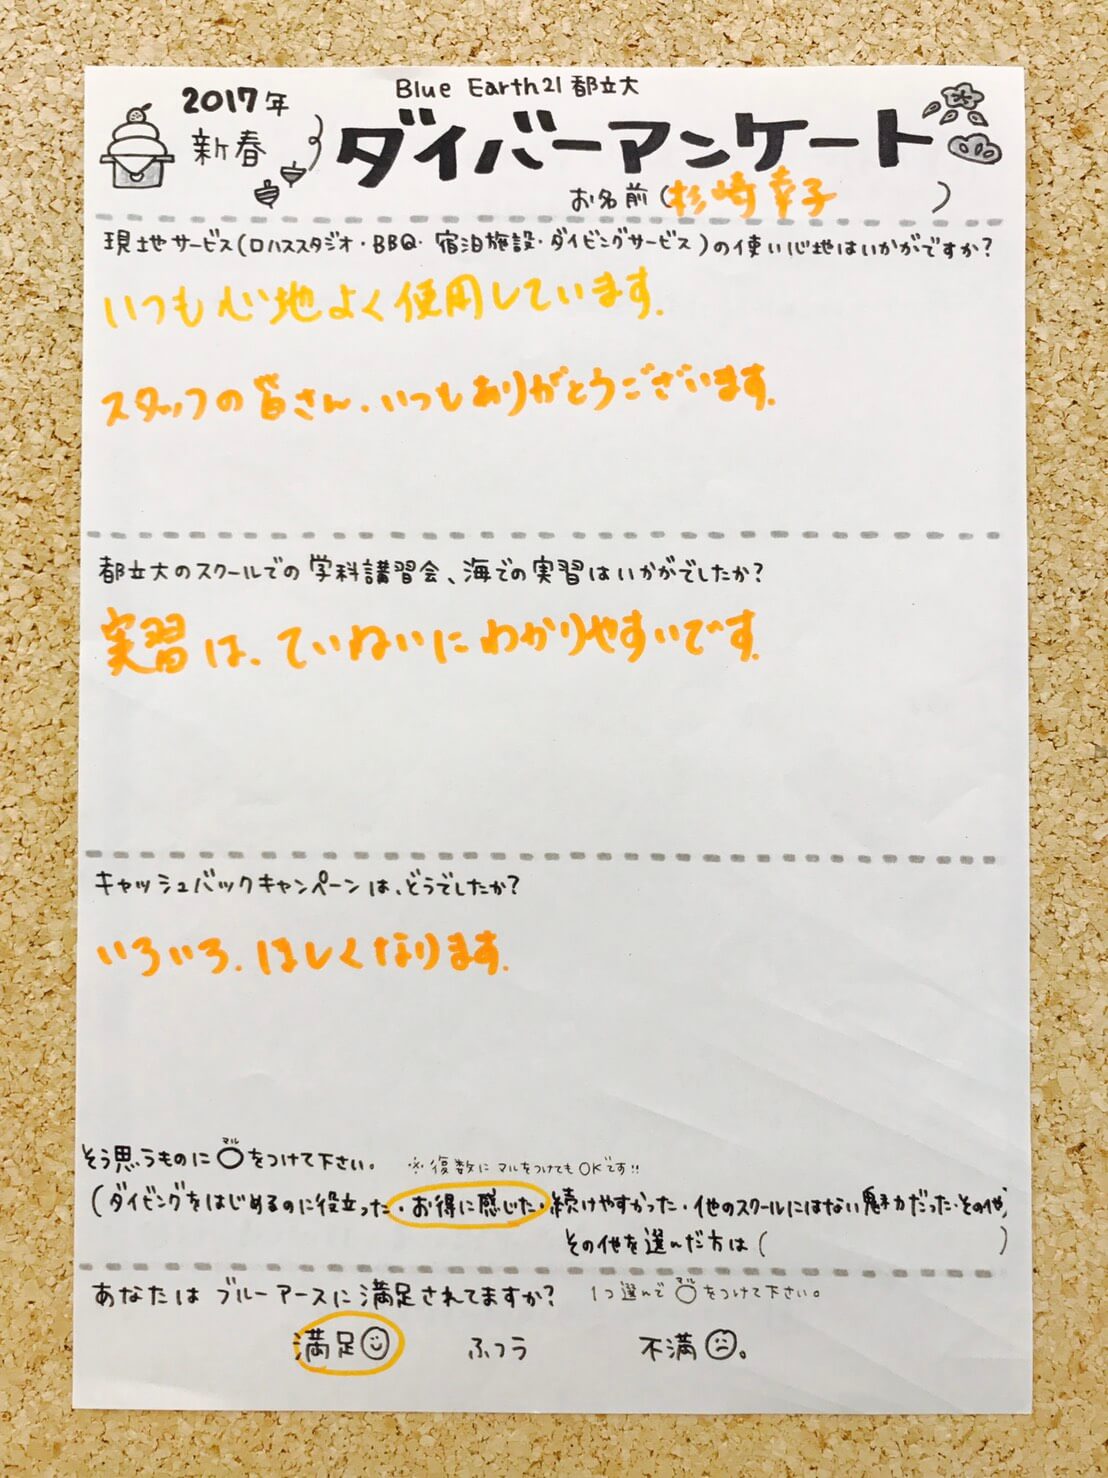 2017年
新春
Blue Earth21 都立大
ダイバーアンケート
お名前(杉崎幸子)
現地サービス(ロハススタジオ・BBQ・宿泊施設・ダイビングサービス)の使い心地はいかがですか?
いつも心地よく使用しています.
スタッフの皆さん.いつもありがとうございます.
都立大のスクールでの学科講習会、海での実習はいかがでしたか?
実習は、ていねいにわかりやすいです.
キャッシュバックキャンペーンは、どうでしたか?
いろいろ.ほしくなります.
マル
そう思うものに○をつけて下さい。 ※復数にマルをつけてもOKです!!
(ダイビングをはじめるのに役立った・お得に感じた・続けやすかった・他のスクールにはない魅力だった・その他)
その他を選んだ方は( )
あなたはブルーアースに満足されてますか? 1つ選んで○をつけて下さい。
満足 ふつう 不満。